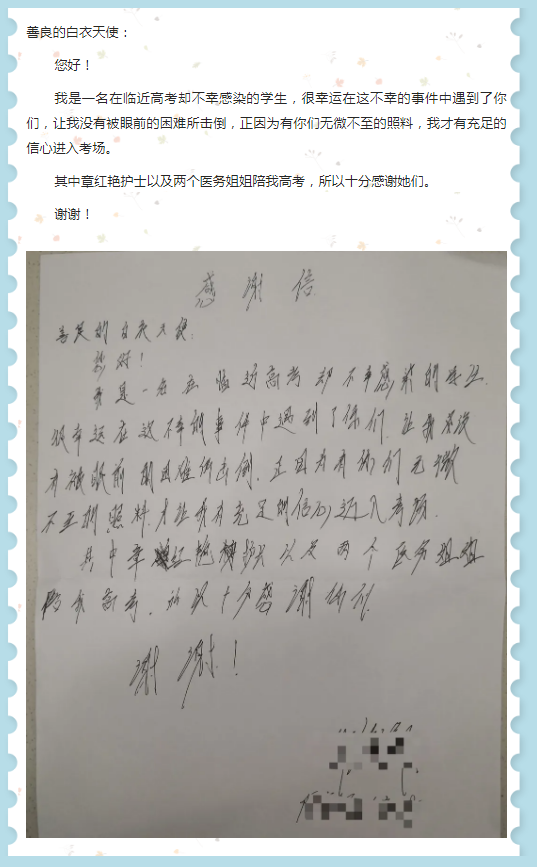 善良的白衣天使：
您好！
我是一名在临近高考却不幸感染的学生，很幸运在这不幸的事件中遇到了你
们，让我没有被眼前的困难所击倒，正因为有你们无微不至的照料，我才有充足的
信心进入考场。
其中章红艳护士以及两个医务姐姐陪我高考，所以十分感谢她们。
谢谢！
感谢信
善良的白衣天使：
您好！
我是一名在临近高考却不幸感染的学生.
很幸运在这不幸的事件中遇到了你们.让我没
有被眼前的困难所击倒.正因为有你们无微
不至的照料.才让我有充足的信心进入考场.
其中章红艳护士以及两个医务姐姐
陪我高考.所以十分感谢你们.
谢谢！